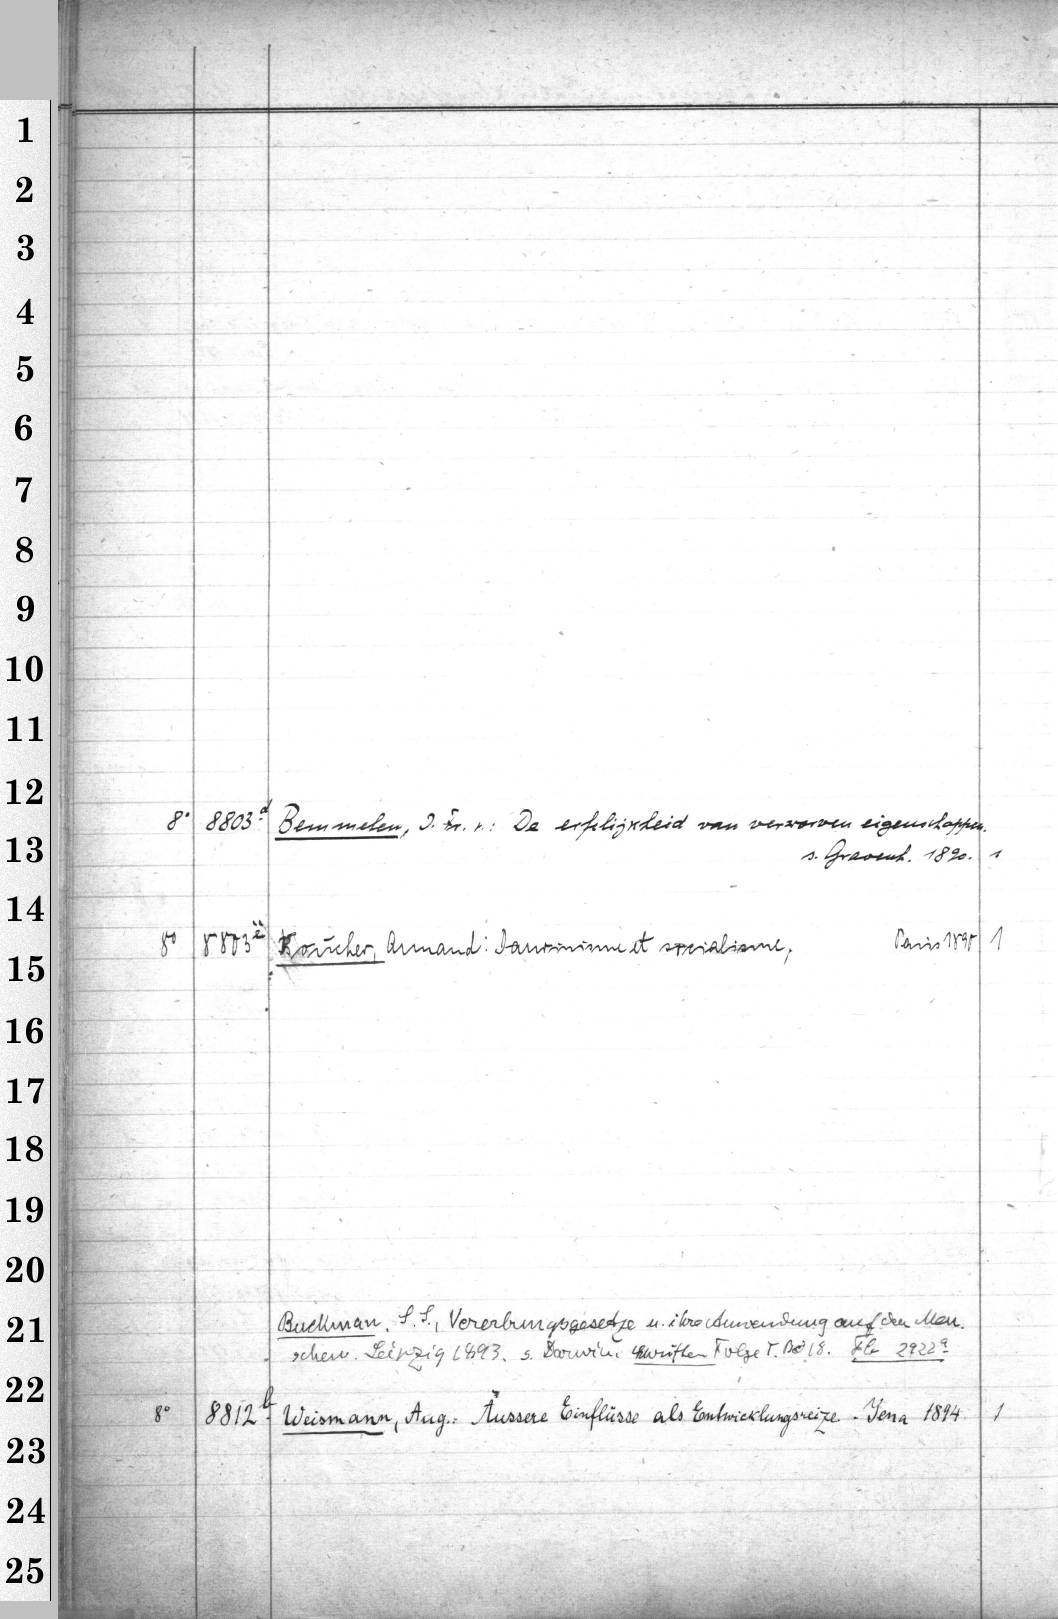 1
2
3
4
5
6
7
8
9
10
11
12
8° 8803d Bemmelen, J. F. v.: De erfelijkheid van verworven eigenschappen.
13
s. Gravenh. 1890. 1
14
8° 8803 Boucher, Armand: Darwinisme et socialisme, Paris 1890 1
15
16
17
18
19
20
Buckman, S. S., Vererbungsgesetze u. ihre Anwendung auf den Men-
21
schen. Leipzig 1893. s. Darwin. Schriften Folge I. Bd 18. 2922a
22
8° 8812b Weismann, Aug.: Äussere Einflüsse als Entwicklungsreize. Jena 1894 1
23
24
25